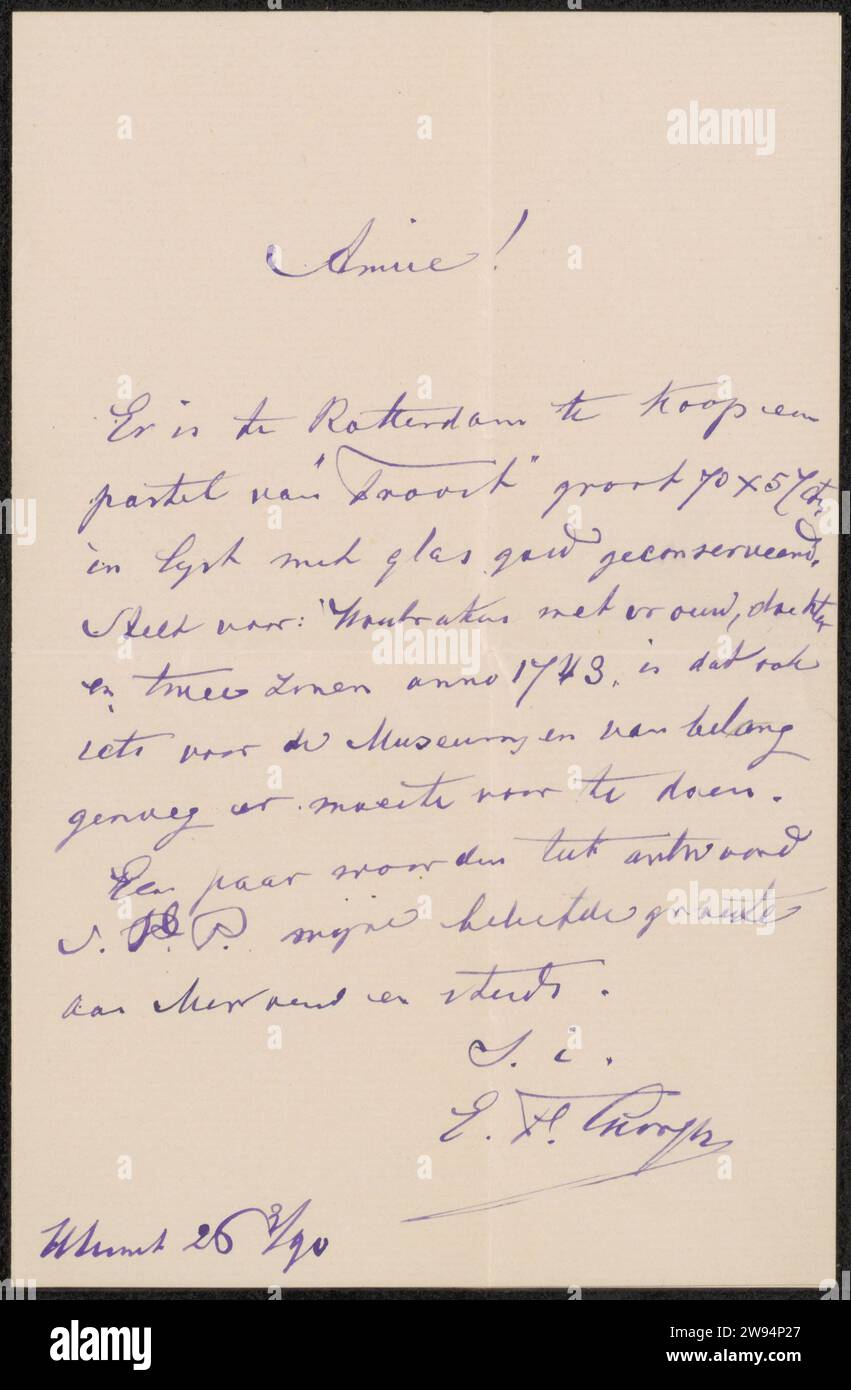 Amice!
Er is te Rotterdam te koop een
pastel van "Troost" groot 70 x 57 ctm
in lyst met glas goed geconserveerd.
Stelt voor: Houbraken met vrouw, dochter
en twee zonen anno 1743. is dat ook
iets voor de Museums en van belang
genoeg er moeite voor te doen.
Een paar woorden tot antwoord
S. V. P. mijne beleefde groete
aan Mevrouw en steeds.
t. i.
E. F.
Utrecht 26 3/90
alamy
Image ID: 2W94P27
www.alamy.com